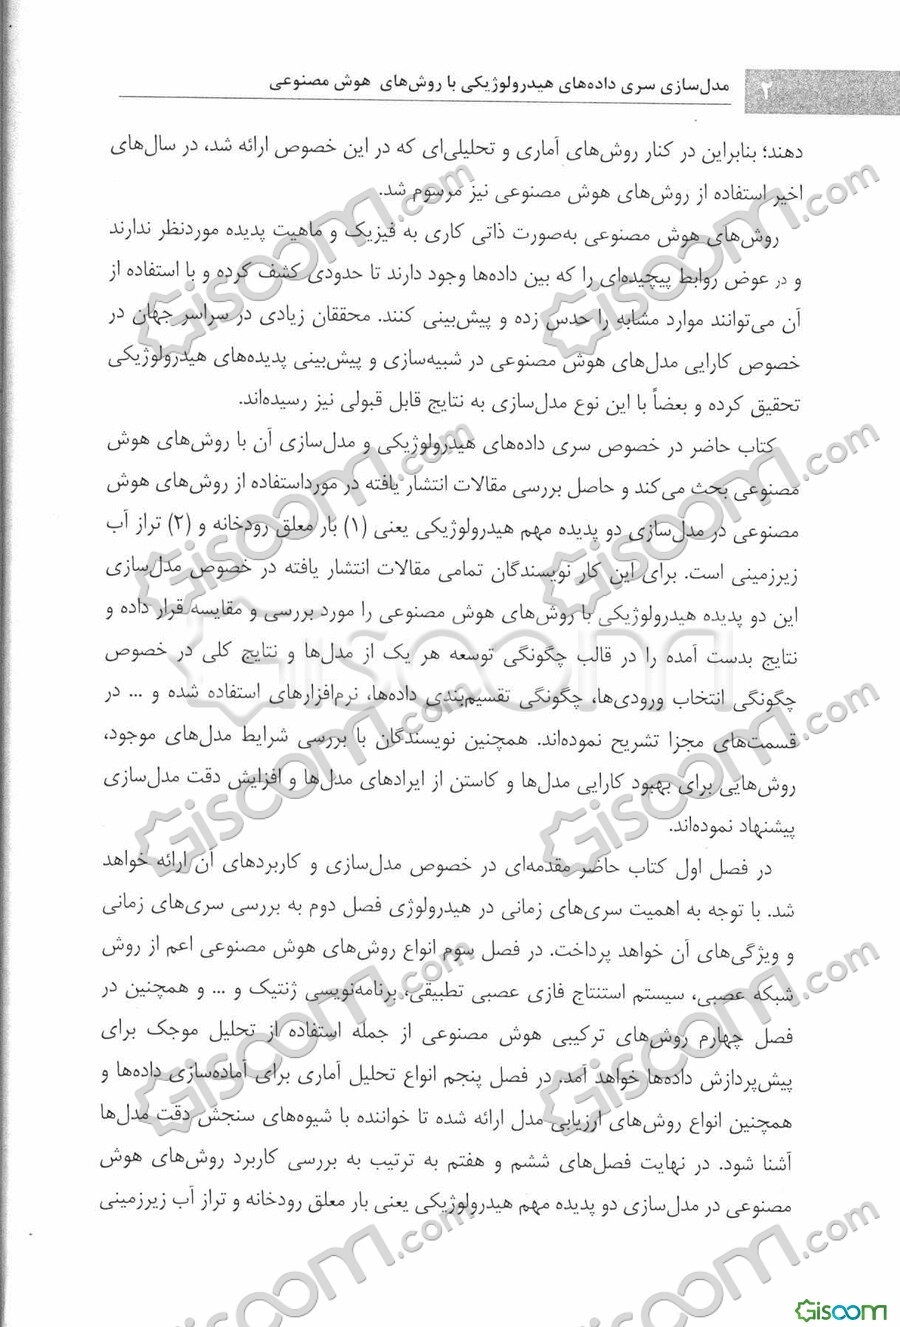 ۲
مدل‌سازی سری داده‌های هیدرولوژیکی با روش‌های هوش مصنوعی
دهند؛ بنابراین در کنار روش‌های آماری و تحلیلی‌ای که در این خصوص ارائه شد، در سال‌های
اخیر استفاده از روش‌های هوش مصنوعی نیز مرسوم شد.
روش‌های هوش مصنوعی به‌صورت ذاتی کاری به فیزیک و ماهیت پدیده موردنظر ندارند
و در عوض روابط پیچیده‌ای را که بین داده‌ها وجود دارند تا حدودی کشف کرده و با استفاده از
آن می‌توانند موارد مشابه را حدس زده و پیش‌بینی کنند. محققان زیادی در سراسر جهان در
خصوص کارایی مدل‌های هوش مصنوعی در شبیه‌سازی و پیش‌بینی پدیده‌های هیدرولوژیکی
تحقیق کرده و بعضاً با این نوع مدل‌سازی به نتایج قابل قبولی نیز رسیده‌اند.
کتاب حاضر در خصوص سری داده‌های هیدرولوژیکی و مدل‌سازی آن با روش‌های هوش
مصنوعی بحث می‌کند و حاصل بررسی مقالات انتشار یافته در مورداستفاده از روش‌های هوش
مصنوعی در مدل‌سازی دو پدیده مهم هیدرولوژیکی یعنی (۱) بار معلق رودخانه و (۲) تراز آب
زیرزمینی است. برای این کار نویسندگان تمامی مقالات انتشار یافته در خصوص مدل‌سازی
این دو پدیده هیدرولوژیکی با روش‌های هوش مصنوعی را مورد بررسی و مقایسه قرار داده و
نتایج بدست آمده را در قالب چگونگی توسعه هر یک از مدل‌ها و نتایج کلی در خصوص
چگونگی انتخاب ورودی‌ها، چگونگی تقسیم‌بندی داده‌ها، نرم‌افزارهای استفاده شده و ... در
قسمت‌های مجزا تشریح نموده‌اند. همچنین نویسندگان با بررسی شرایط مدل‌های موجود،
روش‌هایی برای بهبود کارایی مدل‌ها و کاستن از ایرادهای مدل‌ها و افزایش دقت مدل‌سازی
پیشنهاد نموده‌اند.
در فصل اول کتاب حاضر مقدمه‌ای در خصوص مدل‌سازی و کاربردهای آن ارائه خواهد
شد. با توجه به اهمیت سری‌های زمانی در هیدرولوژی فصل دوم به بررسی سری‌های زمانی
و ویژگی‌های آن خواهد پرداخت. در فصل سوم انواع روش‌های هوش مصنوعی اعم از روش
شبکه عصبی، سیستم استنتاج فازی عصبی تطبیقی، برنامه‌نویسی ژنتیک و ... و همچنین در
فصل چهارم روش‌های ترکیبی هوش مصنوعی از جمله استفاده از تحلیل موجک برای
پیش‌پردازش داده‌ها خواهد آمد. در فصل پنجم انواع تحلیل آماری برای آماده‌سازی داده‌ها و
همچنین انواع روش‌های ارزیابی مدل ارائه شده تا خواننده با شیوه‌های سنجش دقت مدل‌ها
آشنا شود. در نهایت فصل‌های ششم و هفتم به ترتیب به بررسی کاربرد روش‌های هوش
مصنوعی در مدل‌سازی دو پدیده مهم هیدرولوژیکی یعنی بار معلق رودخانه و تراز آب زیرزمینی
Gisoom